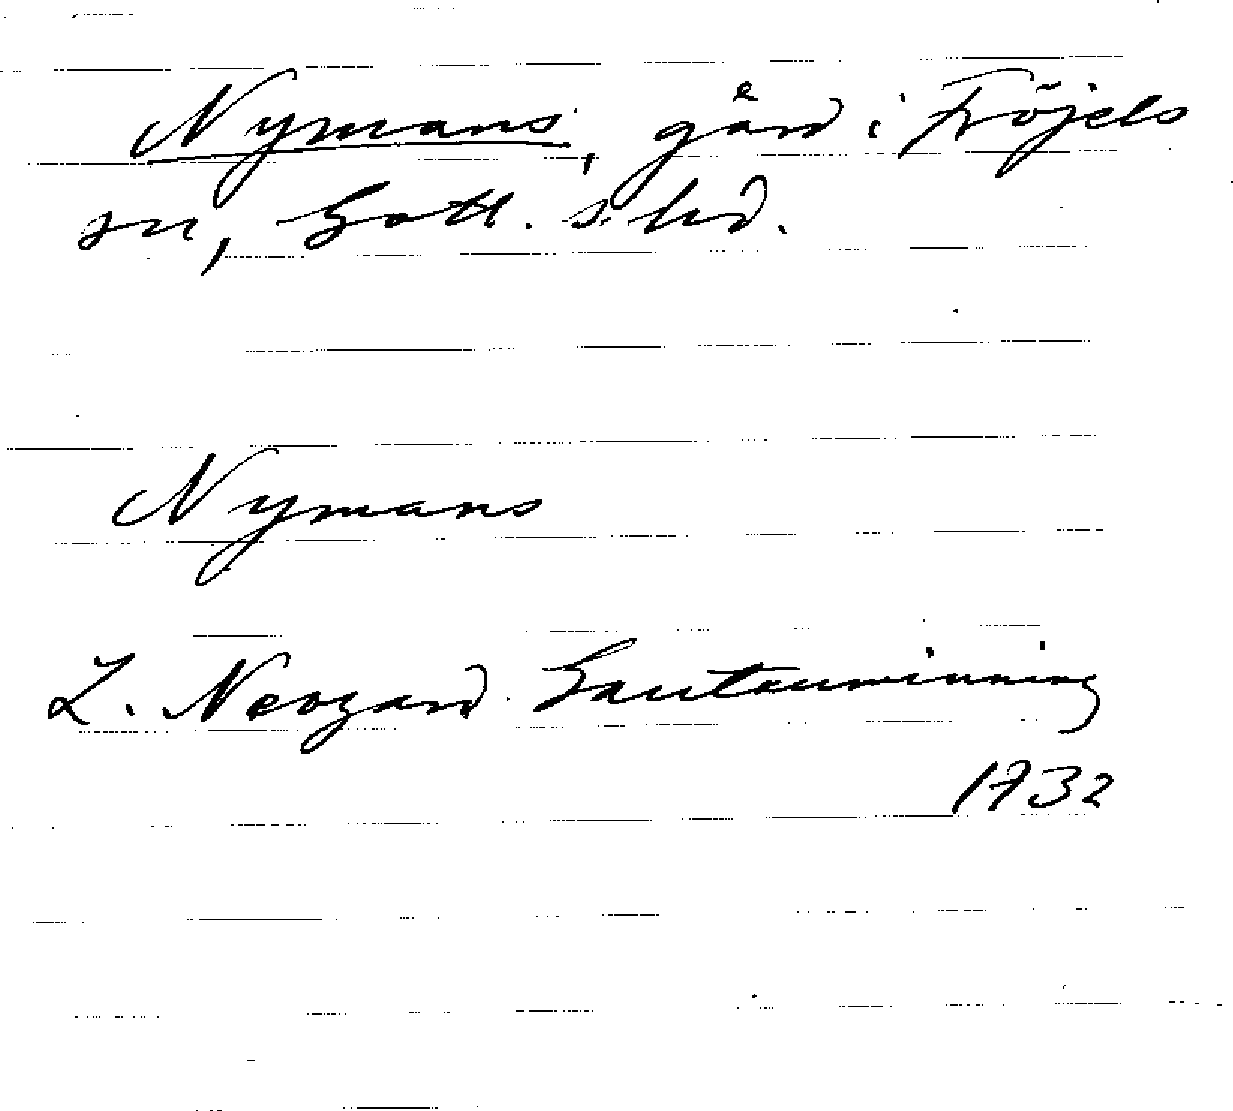 Nymans, gård i Fröjels
sn, Gotl. s. hd.
Nymans
L. Neogard Gautauminning
1732